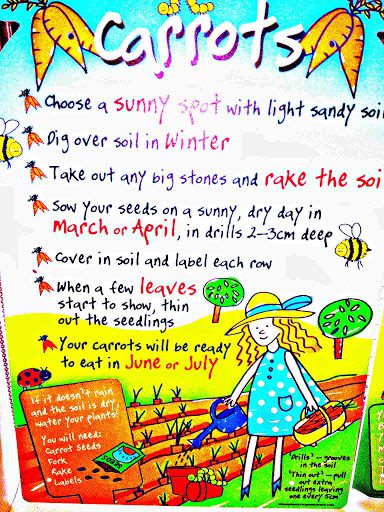 Carrots
Choose a sunny spot with light sandy soi
Dig over soil in Winter
Take out any big stones and rake the soi
Sow your seeds on a sunny, dry day in
March or April, in drills 2-3cm deep
Cover in soil and label each row
When a few leaves
start to show, thin
out the seedlings
Your carrots will be ready
to eat in June or July
If it doesn't rain
and the soil is dry
water your plants!
You will need:
Carrot Seeds
Fork
Rake
Labels
'Drills' - grooves
in the soil
'Thin out' - pull
out extra
seedlings leaving
one every 5cm